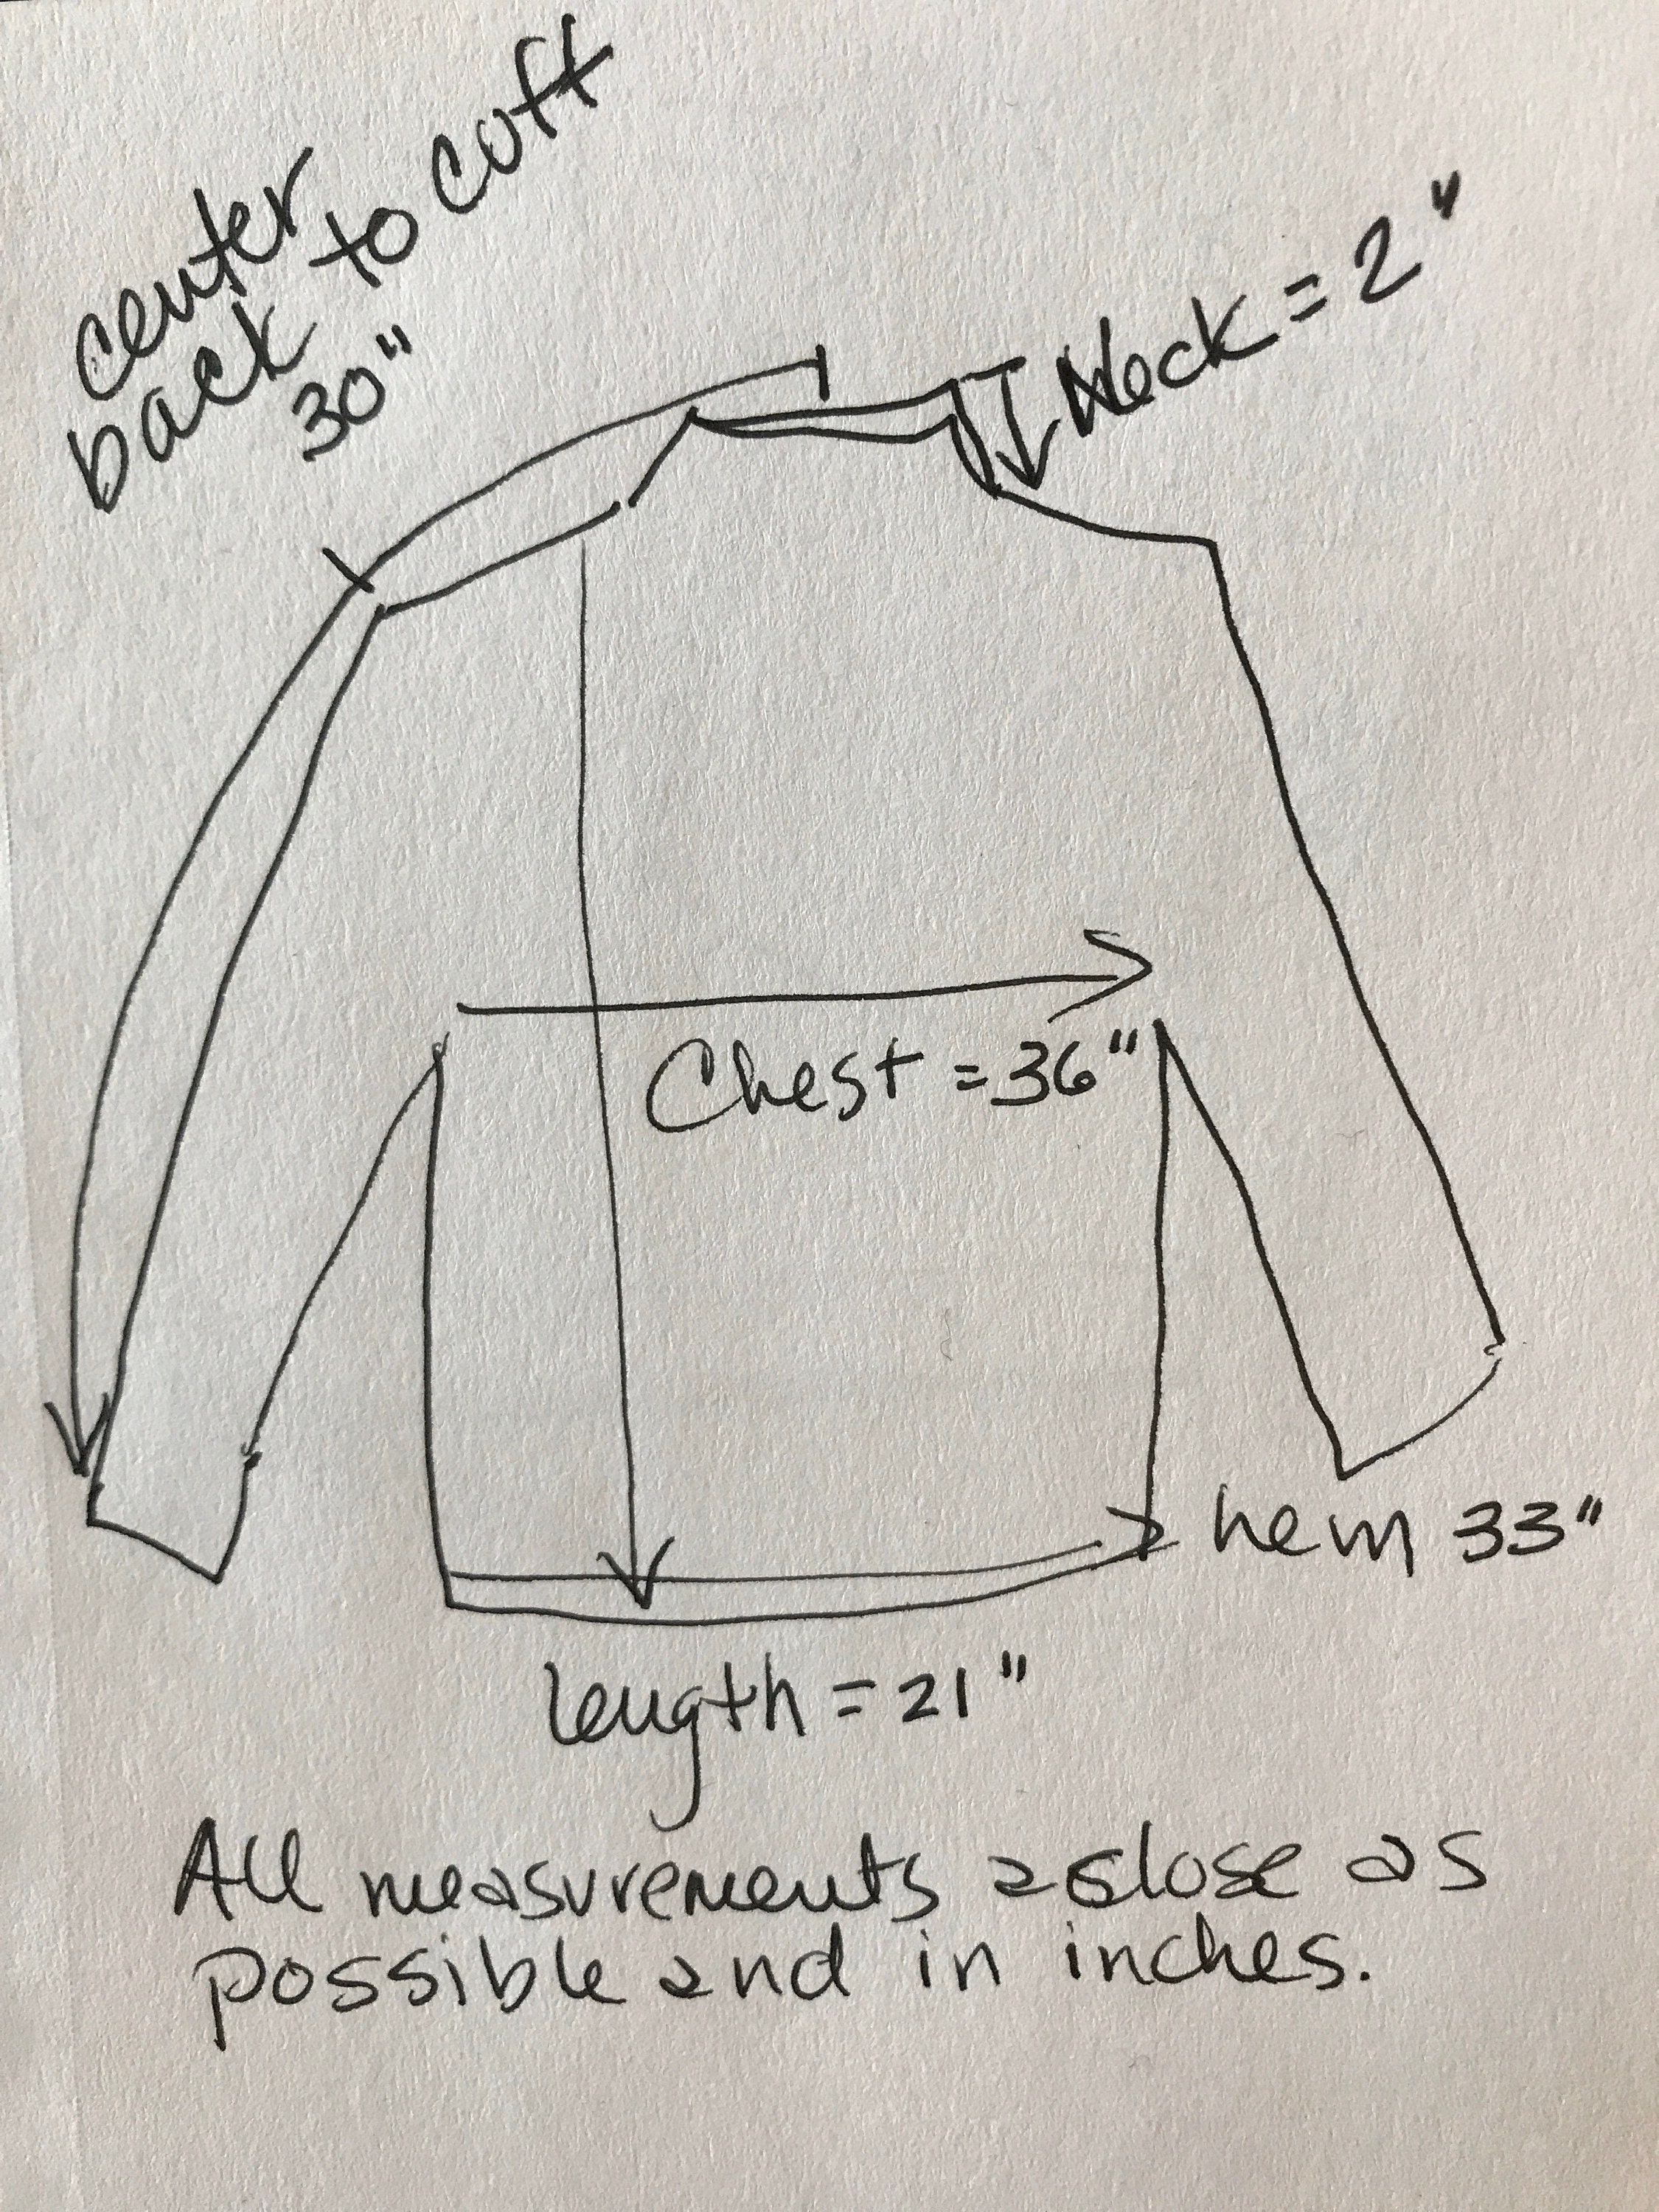 center
back to cuff
30"
Neck = 2"
Chest = 36"
hem 33"
length = 21"
All measurements as close as
possible and in inches.